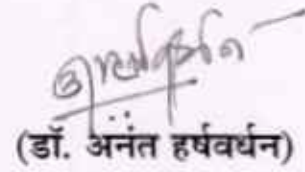 (डॉ. अनंत हर्षवर्धन)